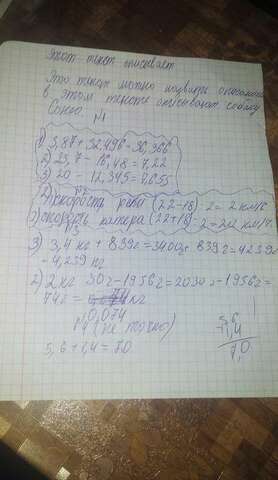 Этот текст описывает
Это текст можно назвать описание
в этом тексте описывают собаку
Сокго
№1
1) 3,87 + 32,496 = 36,366
2) 23,7 - 16,48 = 7,22
3) 20 - 12,345 = 7,655
№2
1) скорость реки (22-18) : 2 = 2 км/ч
2) скорость катера (22+18) : 2 = 20 км/ч.
№3
3) 3,4 кг + 839г = 3400г + 839г = 4239г
= 4,239 кг
2) 2 кг 30г - 1956г = 2030г - 1956г =
74г = 0,074 кг
№4 (не точно)
5,6 + 1,4 = 70
5,6
1,4
7,0